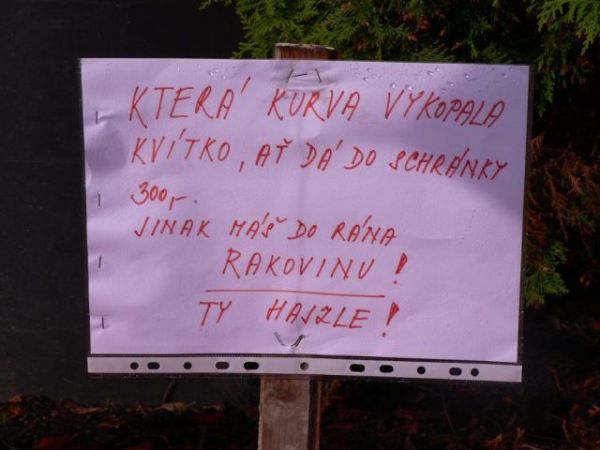 KTERÁ KURVA VYKOPALA
KVÍTKO, AŤ DÁ DO SCHRÁNKY
300,-.
JINAK MÁŠ DO RÁNA
RAKOVINU!
TY HAJZLE!